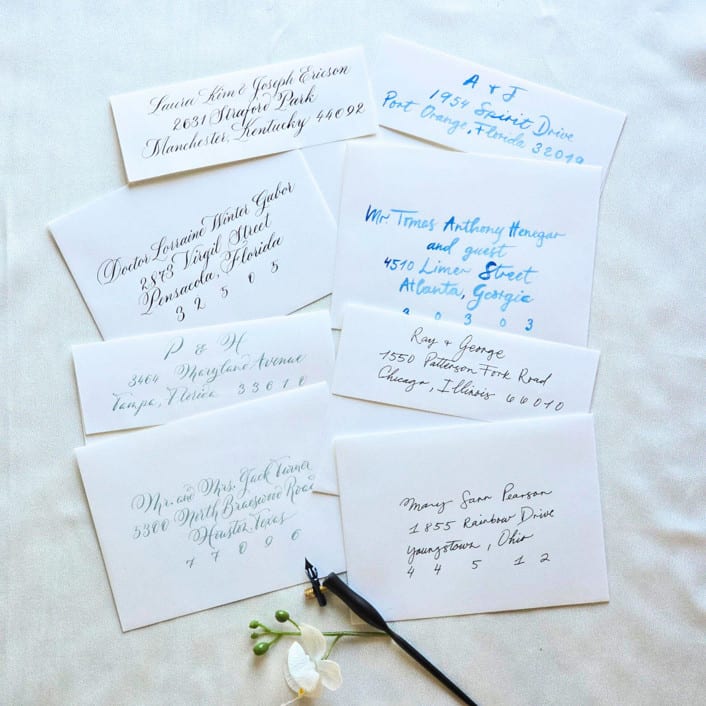 Laura Kim & Joseph Ericson
2631 Straford Park
Manchester, Kentucky 44092
A + J
1954 Spirit Drive
Port Orange, Florida 32019
Doctor Lorraine Winter Gabor
2873 Virgil Street
Pensacola, Florida
32505
Mr. Tomas Anthony Henegar
and guest
4510 Limer Street
Atlanta, Georgia
30303
P & H
3464 Maryland Avenue
Tampa, Florida 33610
Ray + George
1550 Patterson Fork Road
Chicago, Illinois 66010
Mr. and Mrs. Jack Turner
5300 North Braeswood Road
Houston, Texas
77096
Mary Sann Pearson
1855 Rainbow Drive
Youngstown, Ohio
44512